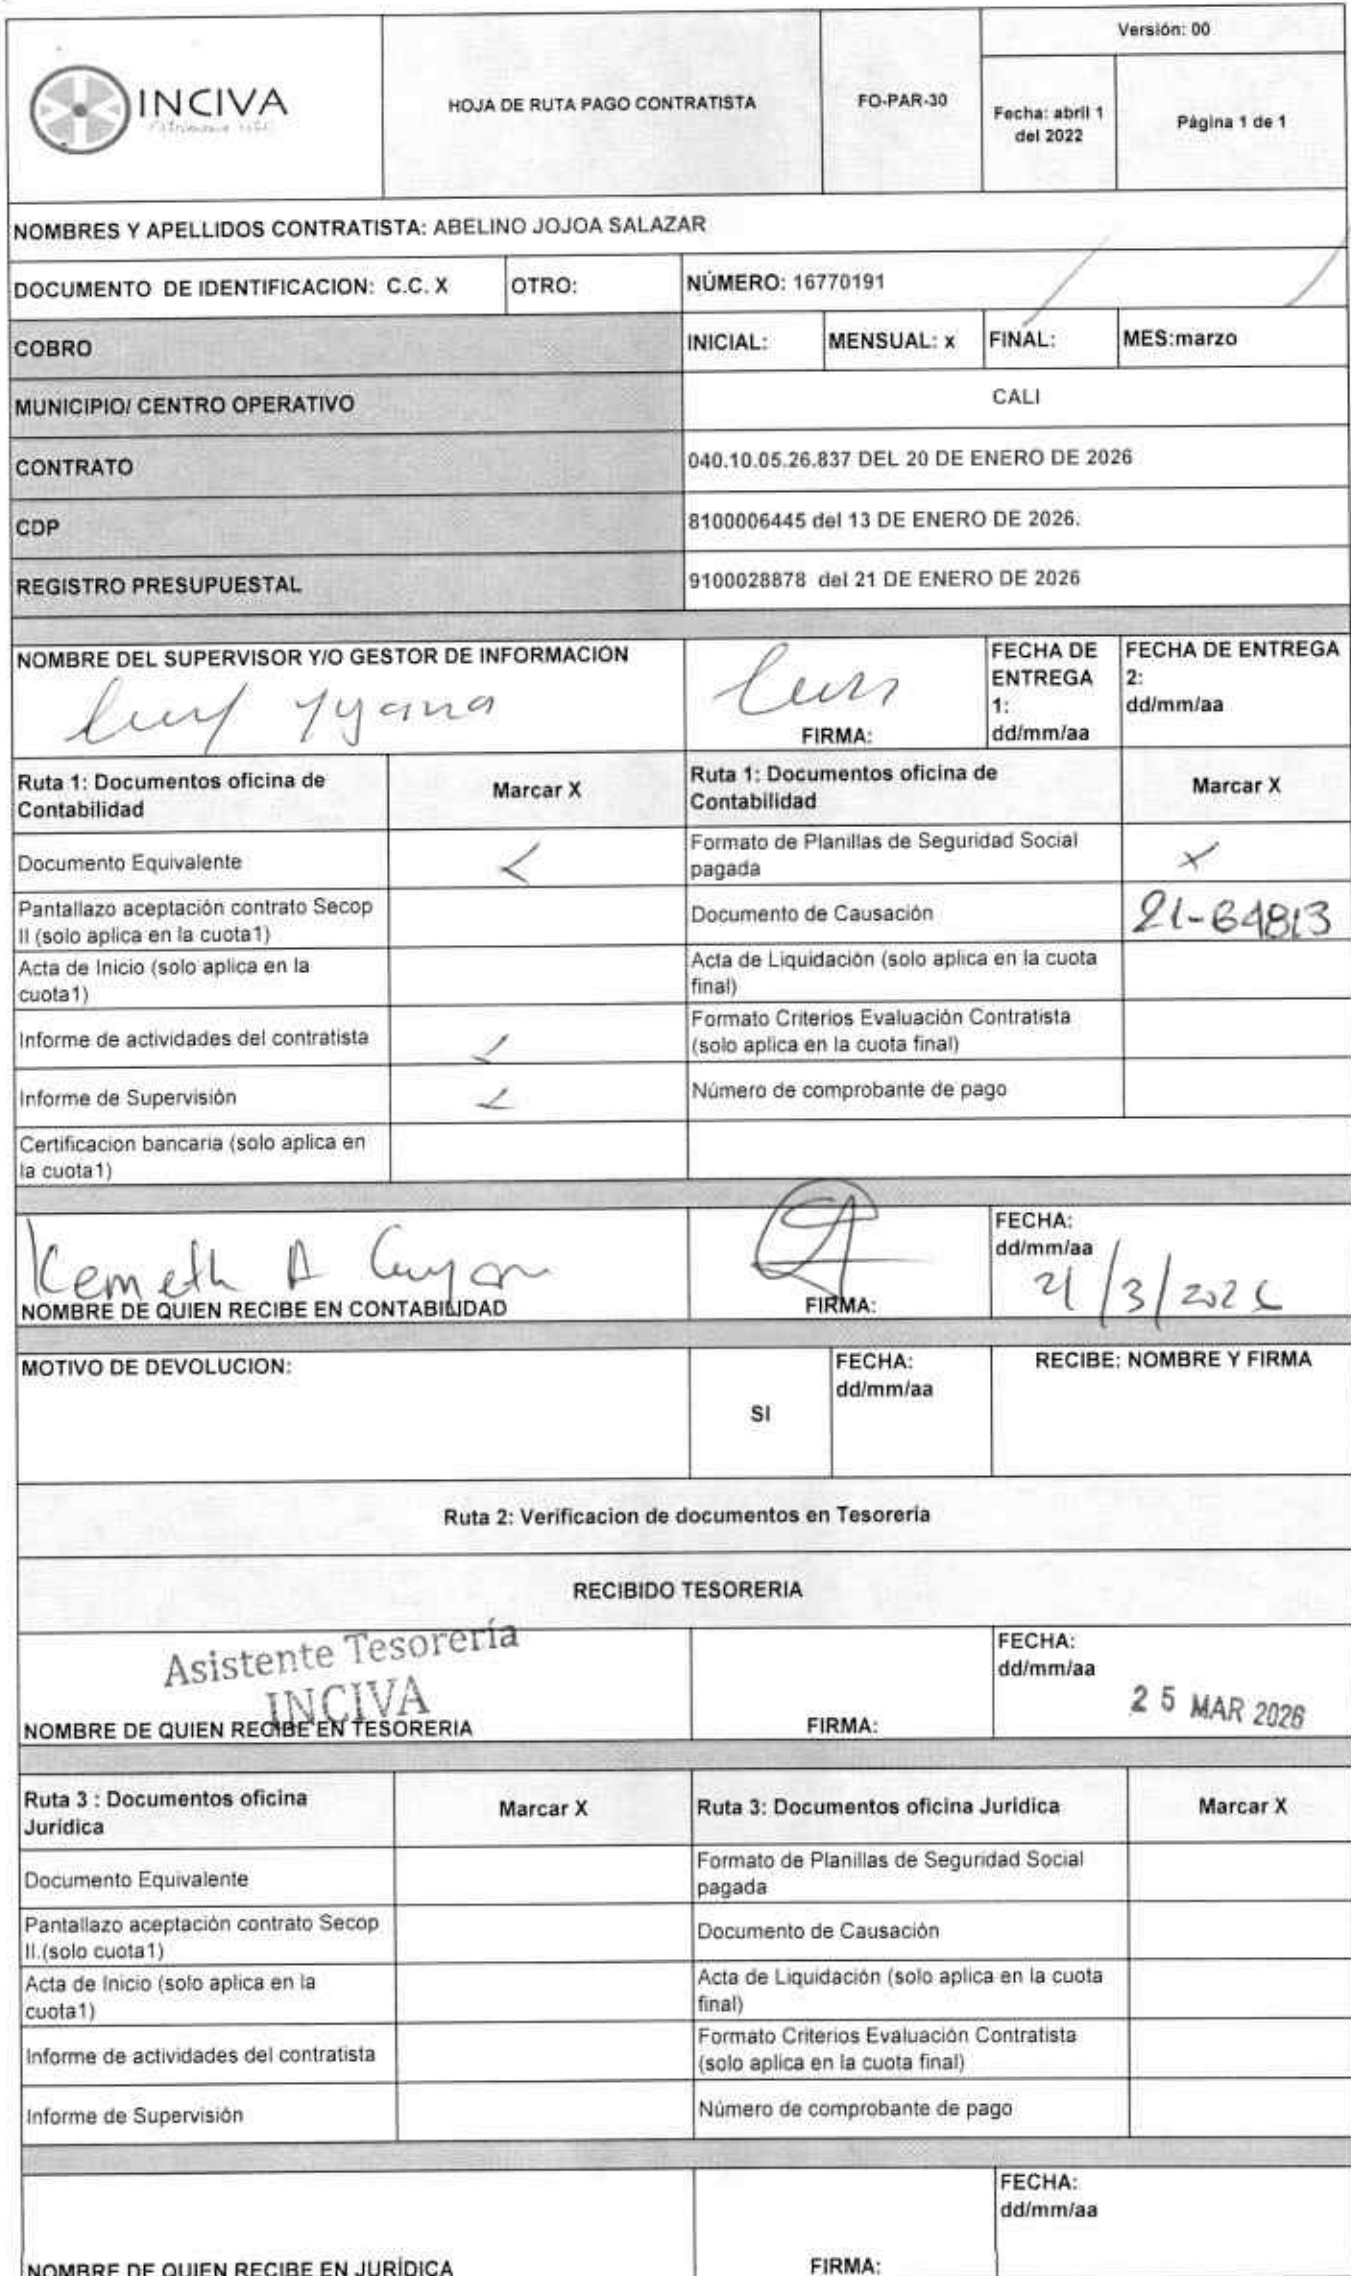 INCIVA
HOJA DE RUTA PAGO CONTRATISTA
FO-PAR-30
Versión: 00
Fecha: abril 1
del 2022
Página 1 de 1
NOMBRES Y APELLIDOS CONTRATISTA: ABELINO JOJOA SALAZAR
DOCUMENTO DE IDENTIFICACION: C.C. X
OTRO:
NÚMERO: 16770191
COBRO
INICIAL:
MENSUAL: x
FINAL:
MES:marzo
MUNICIPIO/ CENTRO OPERATIVO
CALI
CONTRATO
040.10.05.26.837 DEL 20 DE ENERO DE 2026
CDP
8100006445 del 13 DE ENERO DE 2026.
REGISTRO PRESUPUESTAL
9100028878 del 21 DE ENERO DE 2026
NOMBRE DEL SUPERVISOR Y/O GESTOR DE INFORMACION
FIRMA:
FECHA DE
ENTREGA
1:
dd/mm/aa
FECHA DE ENTREGA
2:
dd/mm/aa
Ruta 1: Documentos oficina de
Contabilidad
Marcar X
Ruta 1: Documentos oficina de
Contabilidad
Marcar X
Documento Equivalente
Formato de Planillas de Seguridad Social
pagada
X
Pantallazo aceptación contrato Secop
II (solo aplica en la cuota1)
Documento de Causación
21-64813
Acta de Inicio (solo aplica en la
cuota1)
Acta de Liquidación (solo aplica en la cuota
final)
Informe de actividades del contratista
Formato Criterios Evaluación Contratista
(solo aplica en la cuota final)
Informe de Supervisión
Número de comprobante de pago
Certificacion bancaria (solo aplica en
la cuota1)
Kemeth A
NOMBRE DE QUIEN RECIBE EN CONTABILIDAD
FIRMA:
FECHA:
dd/mm/aa
21/3/2026
MOTIVO DE DEVOLUCION:
SI
FECHA:
dd/mm/aa
RECIBE: NOMBRE Y FIRMA
Ruta 2: Verificacion de documentos en Tesorería
RECIBIDO TESORERIA
Asistente Tesorería
INCIVA
NOMBRE DE QUIEN RECIBE EN TESORERIA
FIRMA:
FECHA:
dd/mm/aa
25 MAR 2026
Ruta 3 : Documentos oficina
Jurídica
Marcar X
Ruta 3: Documentos oficina Juridica
Marcar X
Documento Equivalente
Formato de Planillas de Seguridad Social
pagada
Pantallazo aceptación contrato Secop
II.(solo cuota1)
Documento de Causación
Acta de Inicio (solo aplica en la
cuota1)
Acta de Liquidación (solo aplica en la cuota
final)
Informe de actividades del contratista
Formato Criterios Evaluación Contratista
(solo aplica en la cuota final)
Informe de Supervisión
Número de comprobante de pago
NOMBRE DE QUIEN RECIBE EN JURÍDICA
FIRMA:
FECHA:
dd/mm/aa